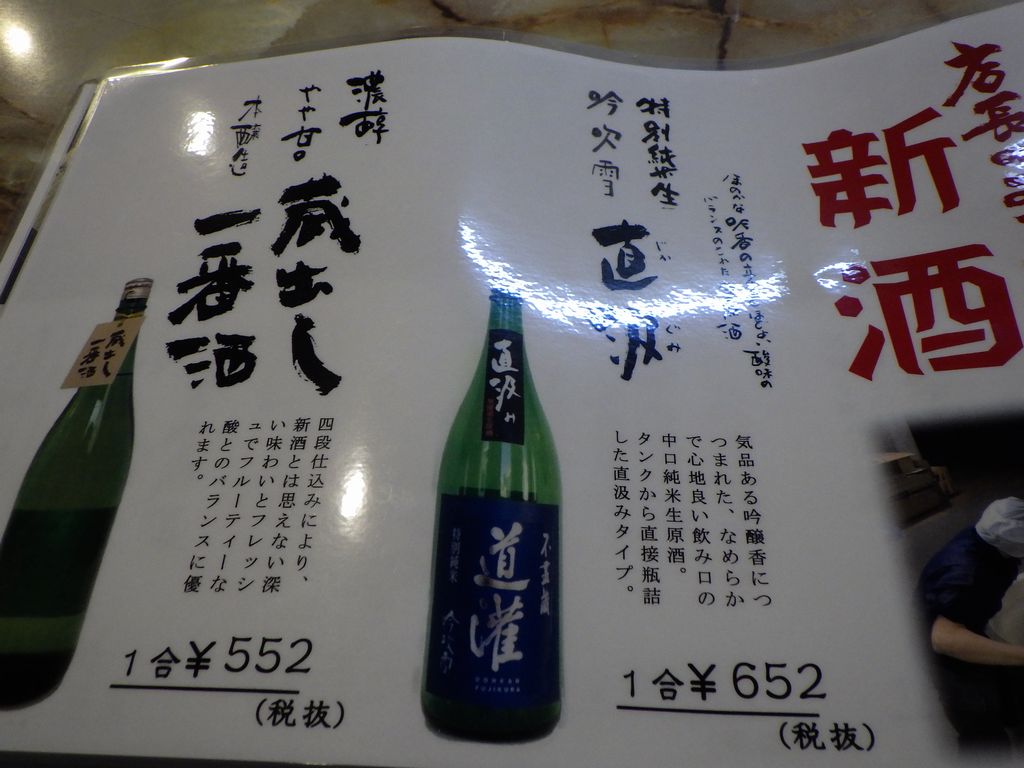 新酒
ほのかな吟香の
酸味の
バランスの
特別純米生
吟吹雪
直汲
じか
ぐみ
気品ある吟醸香につ
つまれた、なめらか
で心地良い飲み口の
中口純米生原酒。
タンクから直接瓶詰
した直汲みタイプ。
1合¥652
(税抜)
直汲み
道灌
特別純米
吟吹雪
DOHKAN
FUJIKURA
濃醇
やや甘口
本醸造
蔵出し
一番酒
四段仕込みにより、
新酒とは思えない深
い味わいとフレッシ
ュでフルーティーな
酸とのバランスに優
れます。
1合¥552
(税抜)
蔵出し
一番酒